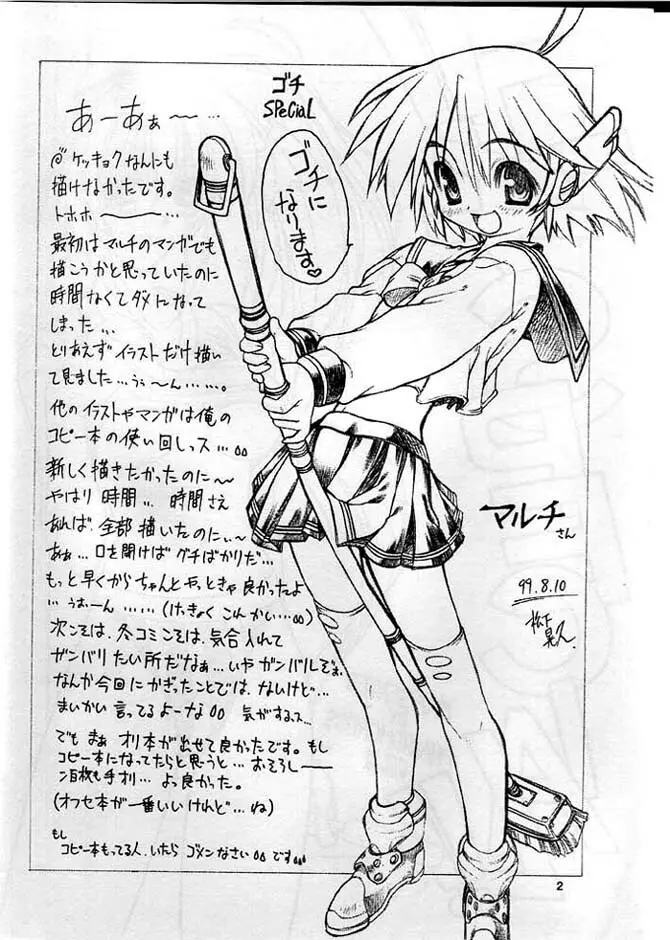 ゴチ
SPeCiaL
あーあぁ〜…
ケッキョクなんにも
描けなかったです。
トホホ〜…
最初はマルチのマンガでも
描こうかと思っていたのに
時間なくてダメになって
しまった…
とりあえずイラストだけ描い
て見ました…うぅ〜ん……。
他のイラストやマンガは俺の
コピー本の使い回しっス…
新しく描きたかったのに〜
やはり時間…時間さえ
あれば、全部描いたのにぃ〜
あぁ…口を開けばグチばかりだ…
もっと早くからちゃんとやっときゃ良かったよ
…うおーん……(けっきょくこんかい…)
次こそは、冬コミこそは、気合入れて
ガンバリたい所だなぁ…いやガンバルぞぉ、
なんか今回にかぎったことでは、ないけど…
まいかい言ってるよーな 気がするっス…
でもまぁオリ本が出せて良かったです。もし
コピー本になってたらと思うと…おそろしー
ン百枚も手オリ…よっ良かった。
(オフセ本が一番いいけれど…ね)
もし
コピー本もってる人、いたら ゴメンなさい です
ゴチに
なります。♡
マルチ
さん
99.8.10
2